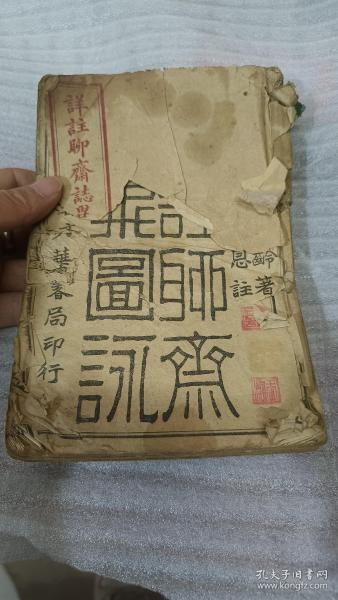 齡著
恩註
聊齋
圖詠
書局印行
詳註聊齋誌異
孔夫子旧书网
kongfz.com